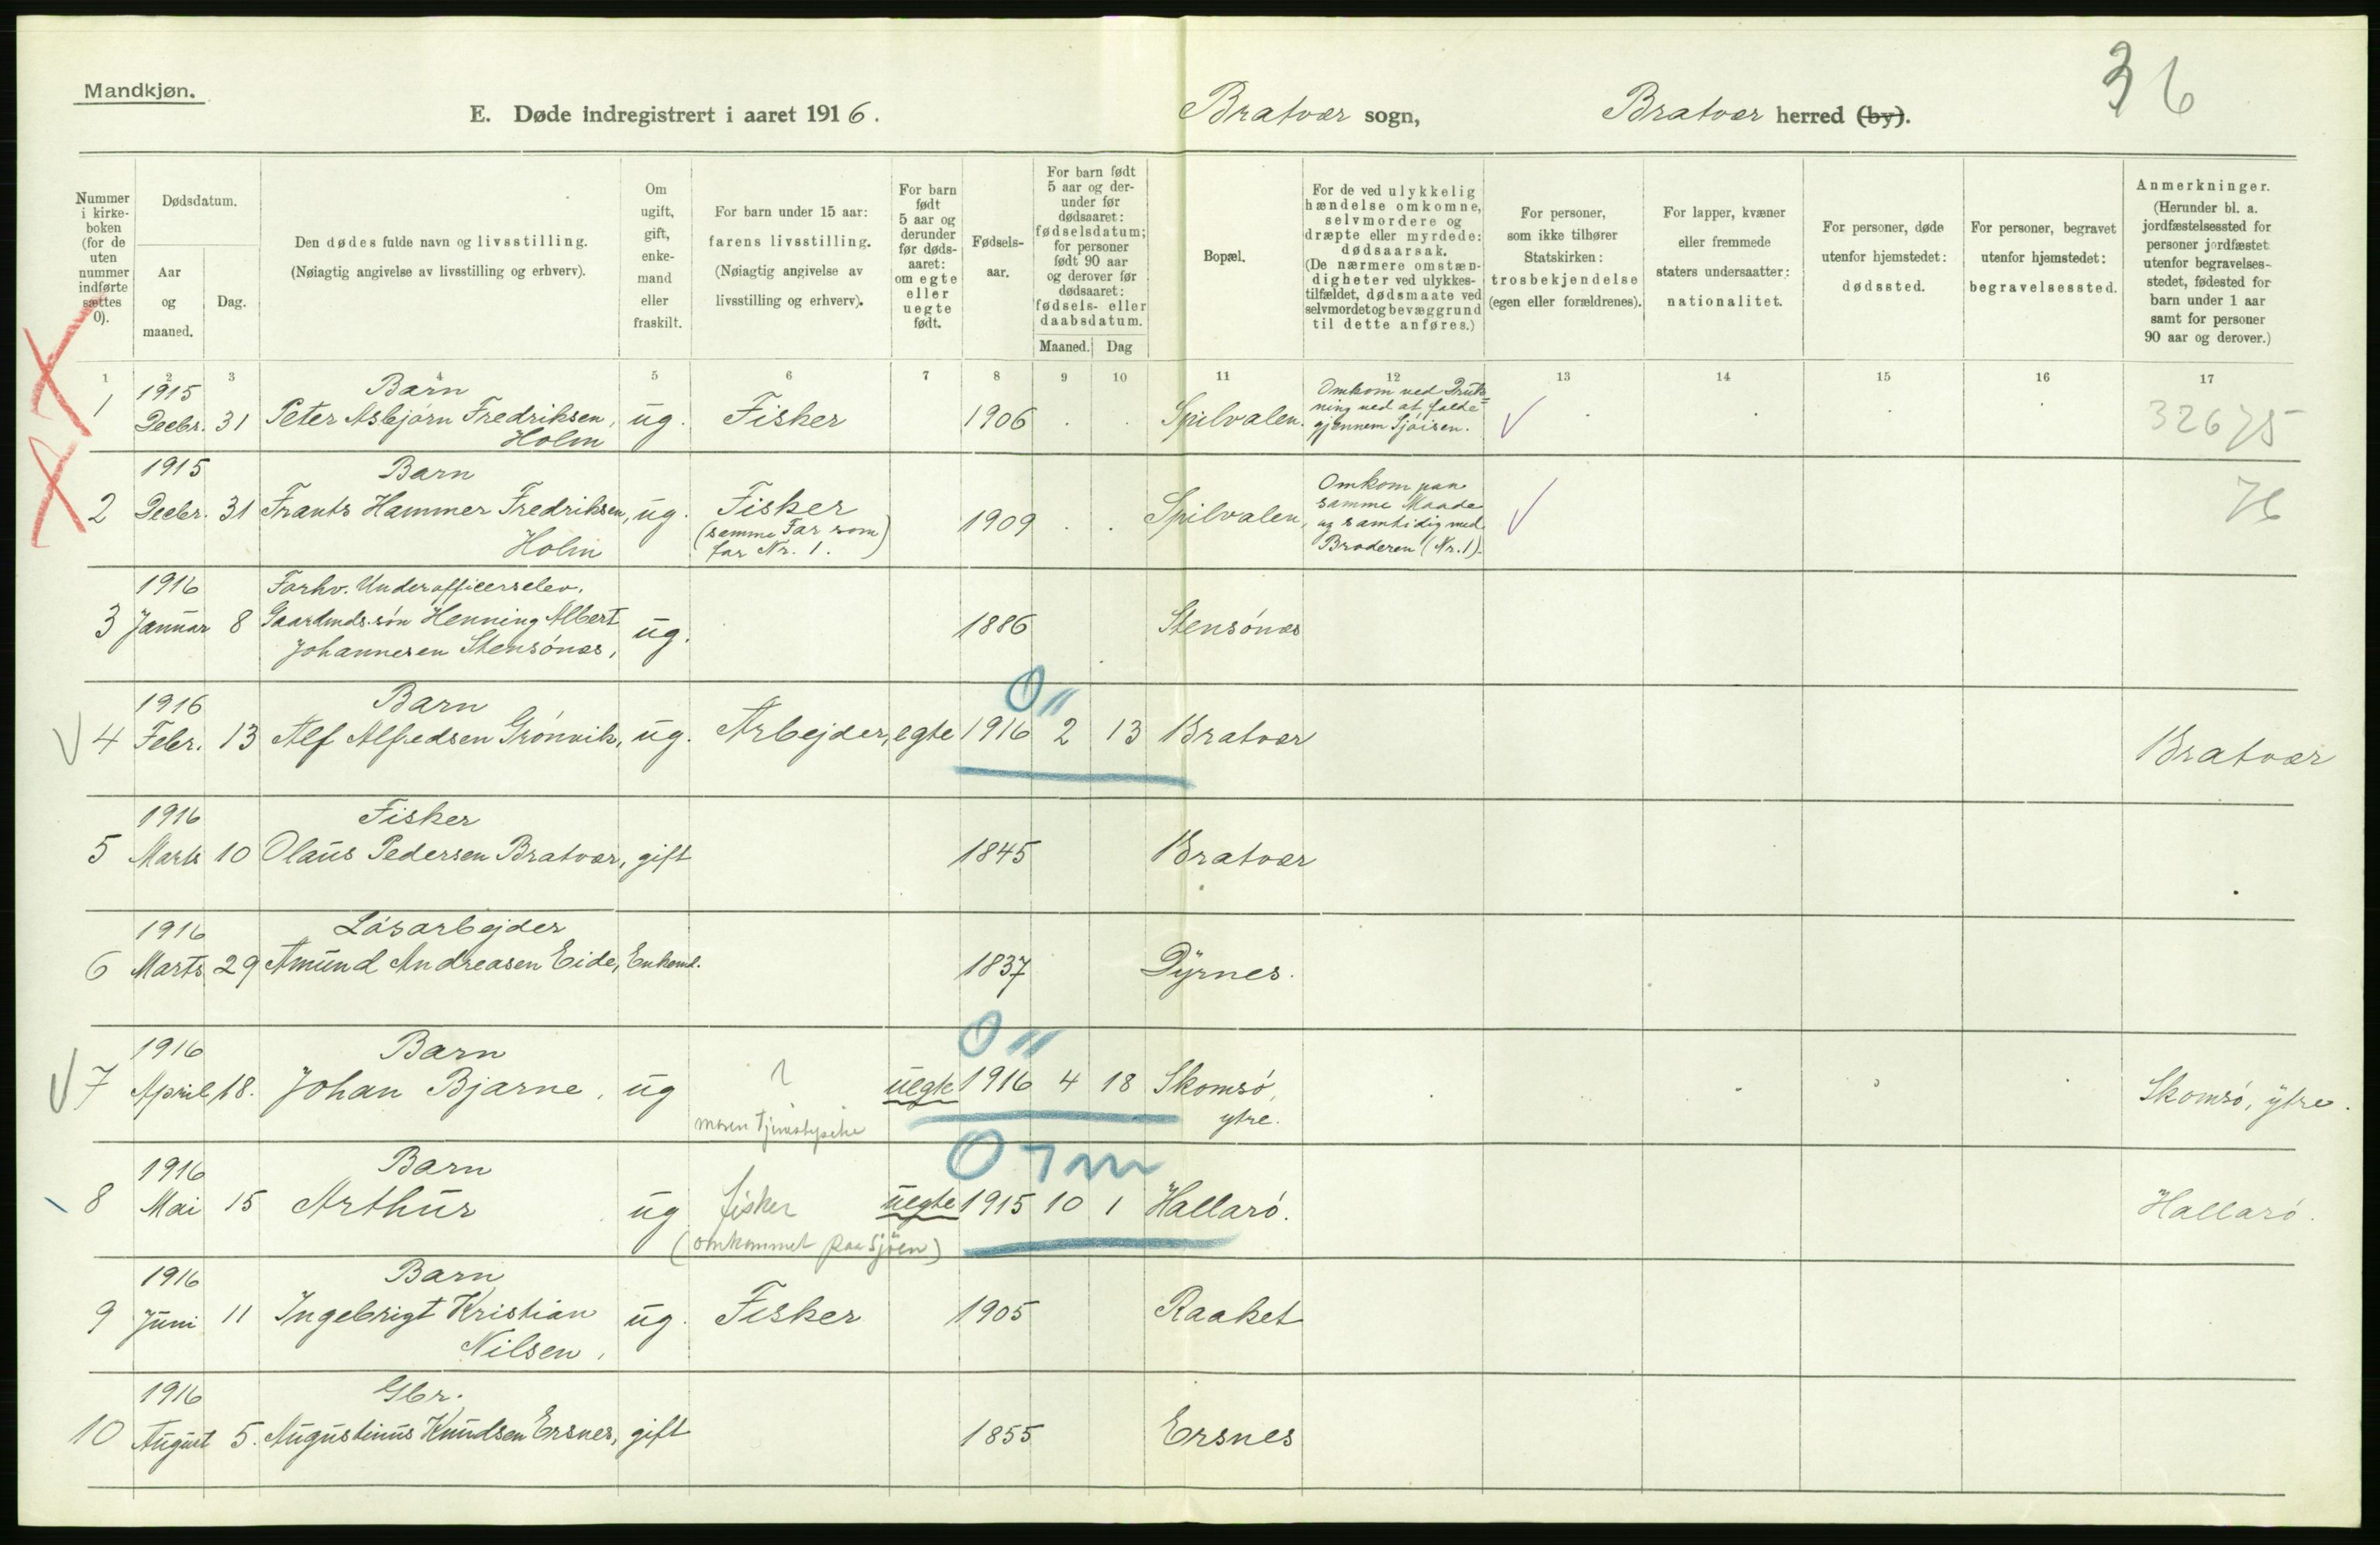 Mandkjøn.
36
E. Døde indregistrert i aaret 1916.
Bratvær sogn,
Bratvær herred (by).
Nummer i kirke-boken (for de uten nummer indførte sættes 0).
Dødsdatum.
Aar og maaned.
Dag.
Den dødes fulde navn og livsstilling.
(Nøiagtig angivelse av livsstilling og erhverv).
Om ugift, gift, enke-mand eller fraskilt.
For barn under 15 aar: farens livsstilling.
(Nøiagtig angivelse av livsstilling og erhverv).
For barn født 5 aar og derunder før døds-aaret: om egte eller uegte født.
Fødsels-aar.
For barn født 5 aar og der-under før dødsaaret: fødselsdatum; for personer født 90 aar og derover før dødsaaret: fødsels- eller daabsdatum.
Maaned. Dag
Bopæl.
For de ved ulykkelig hændelse omkomne, selvmordere og dræpte eller myrdede: dødsaarsak.
(De nærmere omstæn-digheter ved ulykkes-tilfældet, dødsmaate ved selvmordet og bevæggrund til dette anføres.)
For personer, som ikke tilhører Statskirken: trosbekjendelse (egen eller forældrenes).
For lapper, kvæner eller fremmede staters undersaatter: nationalitet.
For personer, døde utenfor hjemstedet: dødssted.
For personer, begravet utenfor hjemstedet: begravelsessted.
Anmerkninger.
(Herunder bl. a. jordfæstelsessted for personer jordfæstet utenfor begravelses-stedet, fødested for barn under 1 aar samt for personer 90 aar og derover.)
1 2 3 4 5 6 7 8 9 10 11 12 13 14 15 16 17
1 1915 Decbr. 31 Barn Peter Asbjørn Fredriksen Holm, ug. Fisker 1906 Spilvalen. Omkom ved Drukning ved at falde gjennem Sjøisen. 32675
2 1915 Decbr. 31 Barn Frants Hammer Fredriksen Holm, ug. Fisker (samme Far som for Nr. 1.) 1909 Spilvalen, Omkom paa samme Maade og samtidig med Broderen (Nr. 1). 76
3 1916 Januar 8 Forhv. Underofficerselev. Gaardmds.søn Henning Albert Johannesen Stensönæs, ug. 1886 Stensönæs
4 1916 Febr. 13 Barn Alf Alfredsen Grönvik, ug. Arbejder, egte 1916 2 13 Bratvær Bratvær
5 1916 Marts 10 Fisker Olaus Pedersen Bratvær, gift 1845 Bratvær
6 1916 Marts 29 Løsarbejder Amund Andreasen Eide, Enkemd. 1837 Dyrnes.
7 1916 April 18. Barn Johan Bjarne, ug ? moren tjenestepike uegte 1916 4 18 Skomsö, ytre. Skomsö, ytre.
8 1916 Mai 15 Barn Arthur ug fisker (omkommet paa Sjöen) uegte 1915 10 1 Hallarö. Hallarö.
9 1916 Juni 11 Barn Ingebrigt Kristian Nilsen, ug. Fisker 1905 Raaket
10 1916 August 5. Gbr. Augustinus Knudsen Ersnes, gift 1855 Ersnes